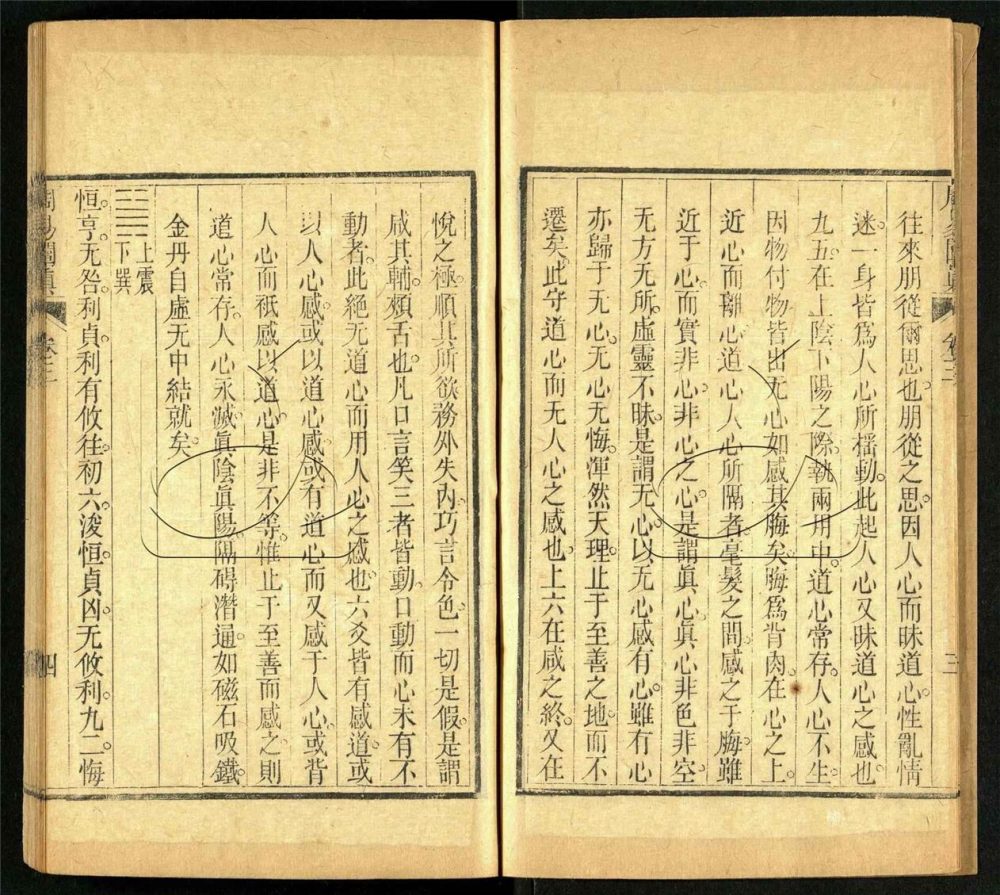 往來朋從爾思也朋從之思因人心而昧道心性亂情
迷一身皆爲人心所搖動此起人心又昧道心之感也
九五在上陰下陽之際執兩用中道心常存人心不生
因物付物皆出无心如感其脢矣脢爲背肉在心之上
近心而離心道心人心所隔者毫髮之間感之于脢雖
近于心而實非心非心之心是謂眞心眞心非色非空
无方无所虛靈不昧是謂无心以无心感有心雖有心
亦歸于无心无心无悔渾然天理止于至善之地而不
遷矣此守道心而无人心之感也上六在咸之終又在
三
悅之極順其所欲務外失內巧言令色一切是假是謂
咸其輔頰舌也凡口言笑三者皆動口動而心未有不
動者此絕无道心而用人心之感也六爻皆有感道或
以人心感或以道心感或有道心而又感于人心或背
人心而祇感以道心是非不等惟止于至善而感之則
道心常存人心永滅眞陰眞陽隔碍潛通如磁石吸鐵
金丹自虛无中結就矣
上震
下巽
恒亨无咎利貞利有攸往初六浚恒貞凶无攸利九二悔
周易闡眞 卷三
四